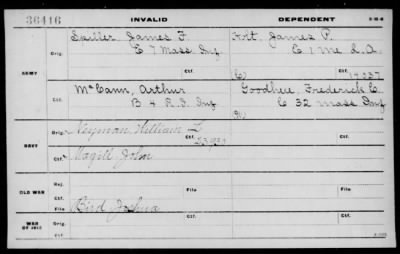 36416 INVALID DEPENDENT
Spiller James F. Holt, James P.
Orig. E 7 Mass Inf E 1 Me L.A.
ARMY Ctf. 17037
McCann, Arthur Goodhue, Frederick E.
Ctf. B 4 R.I. Inf C 32 Mass Inf
Orig. Neyman, William L.
NAVY
Ctf. Magill, John
Rej. File Ctf.
OLD WAR Ctf.
File Bird Joshua
WAR OF 1812 Orig. Ctf.
Ctf.